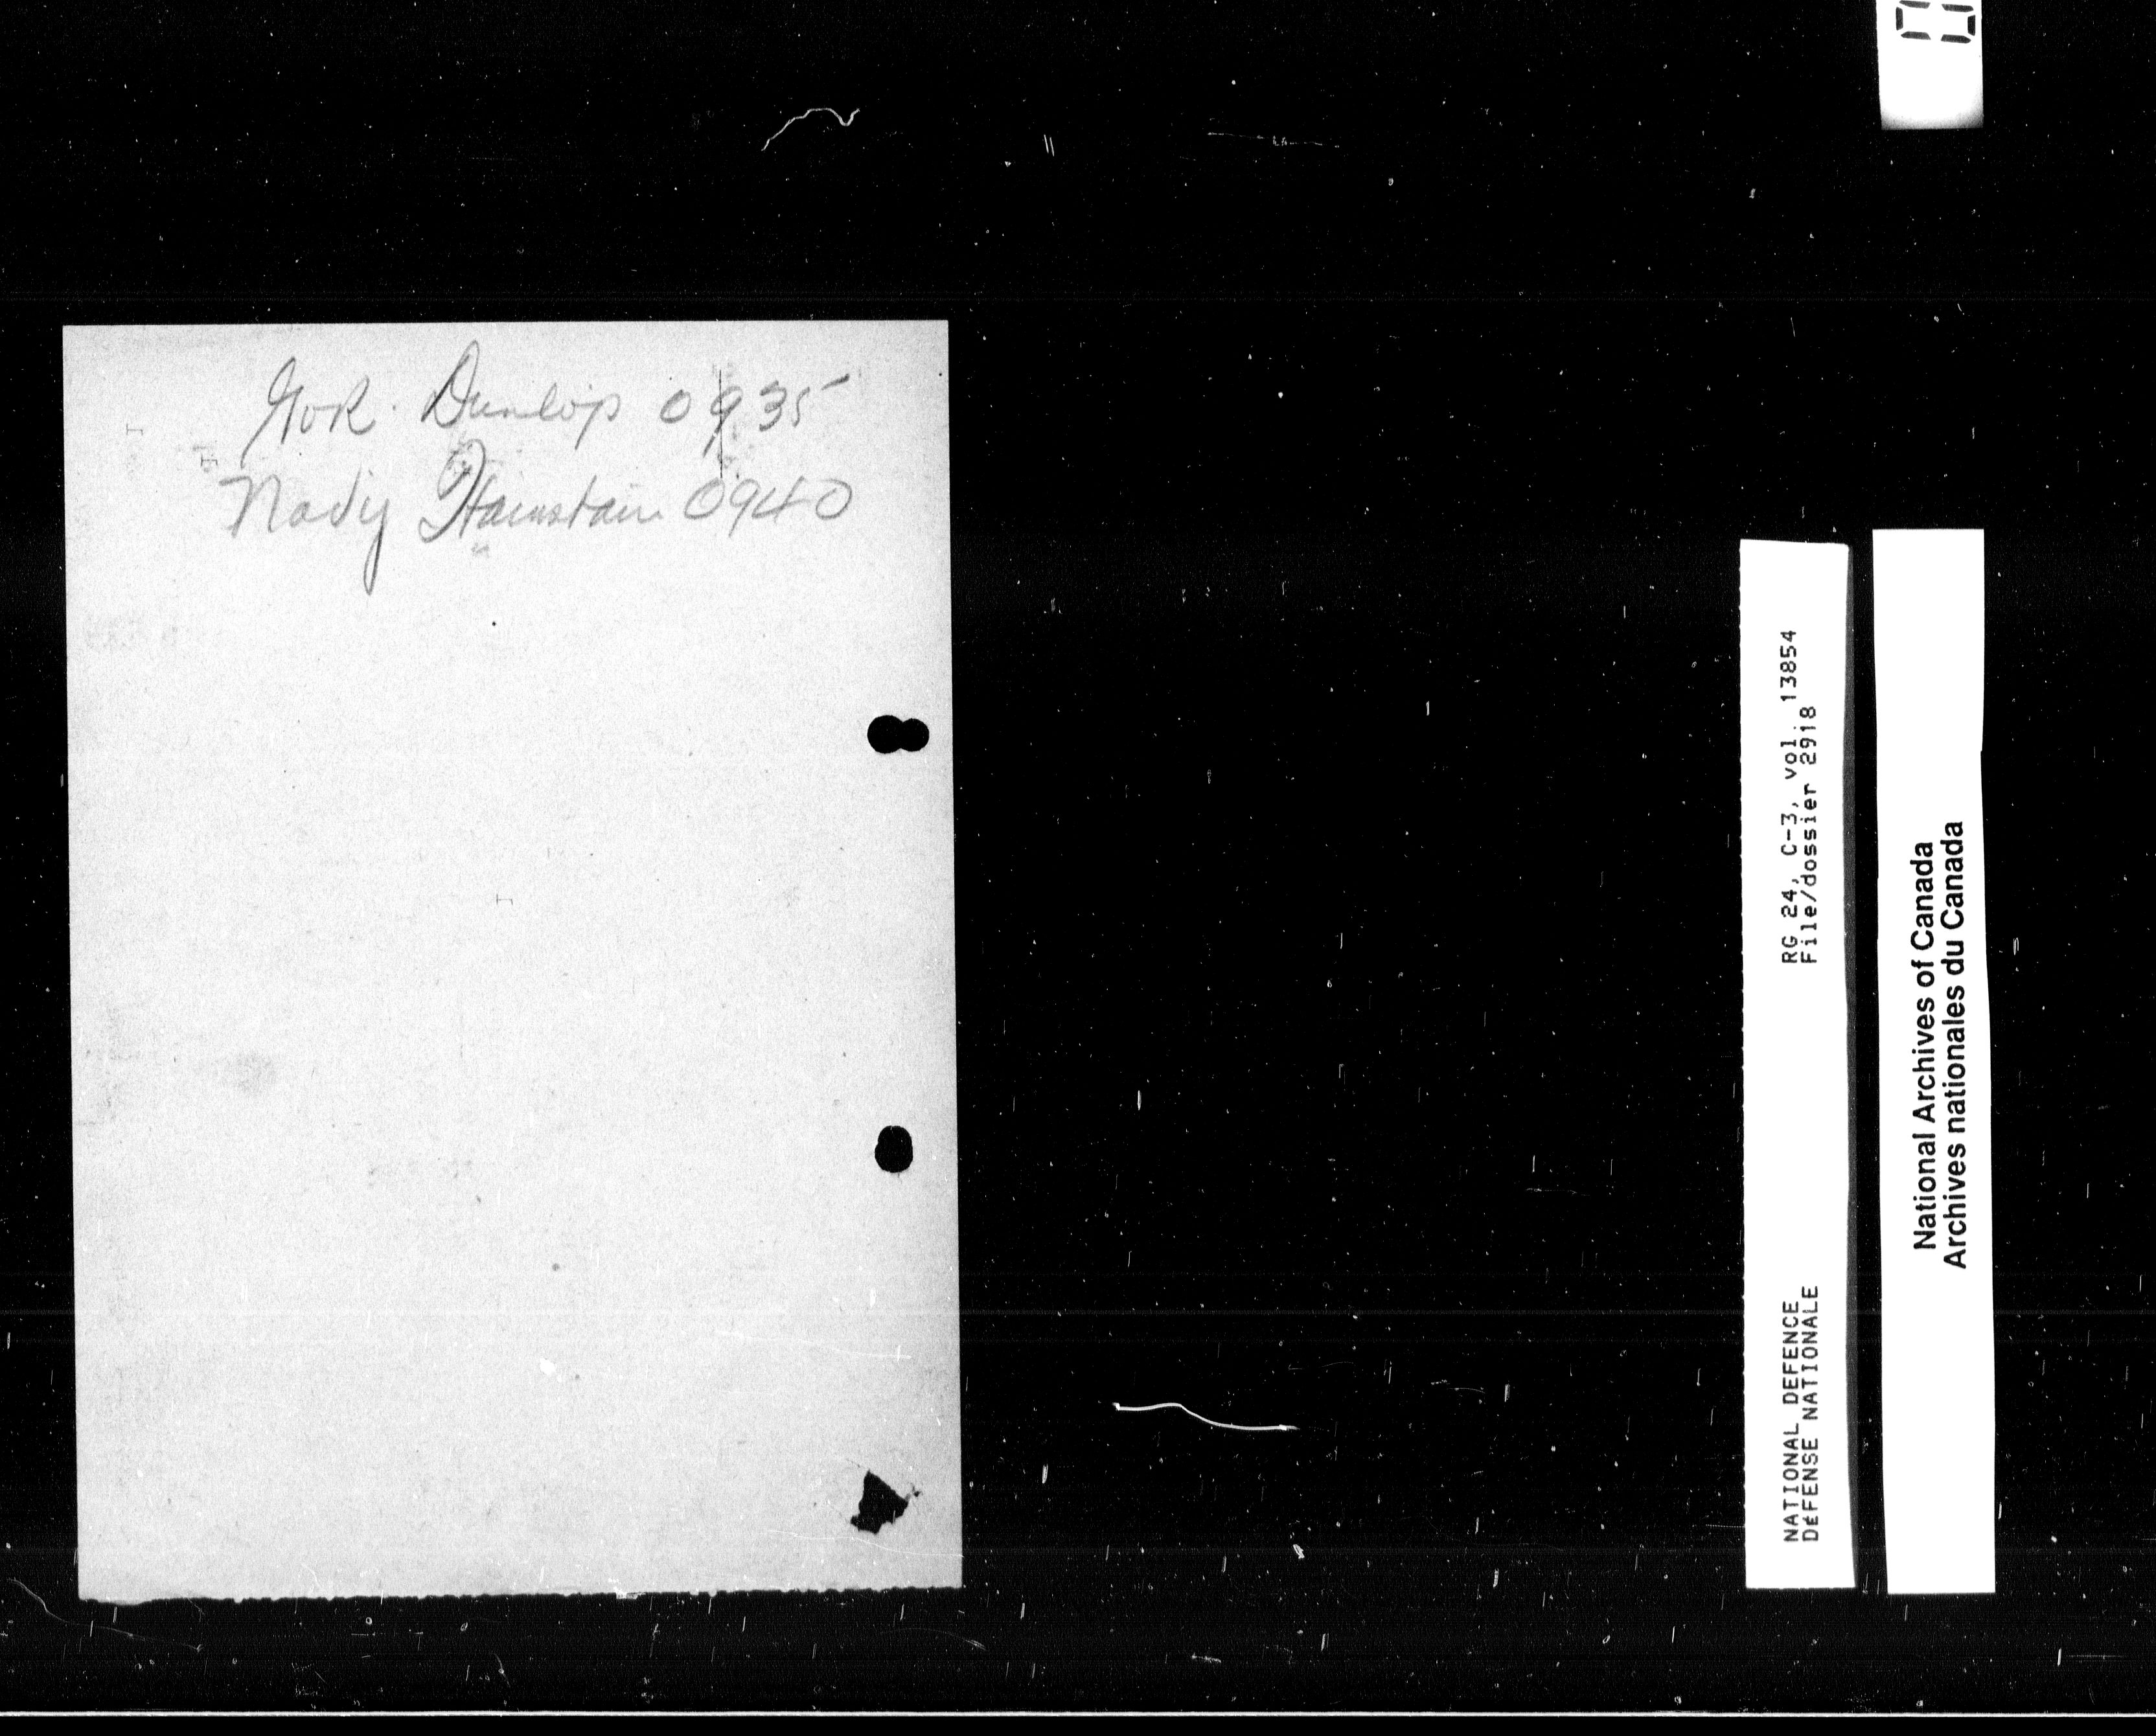 Dunlop 0935
0940
RG 24, C-3, vol. 13854
File/dossier 2918
NATIONAL DEFENCE
DÉFENSE NATIONALE
National Archives of Canada
Archives nationales du Canada